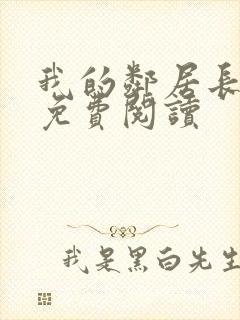 我的鄰居長
免費閱讀
我是黑白先生